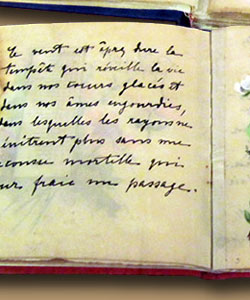 Le vent est âpre dure la
tempête qui réveille la vie
dans nos cœurs glacés et
dans nos âmes engourdies,
dans lesquelles les rayons ne
énètrent plus sans une
ecousse mortelle qui
ur fraie un passage.